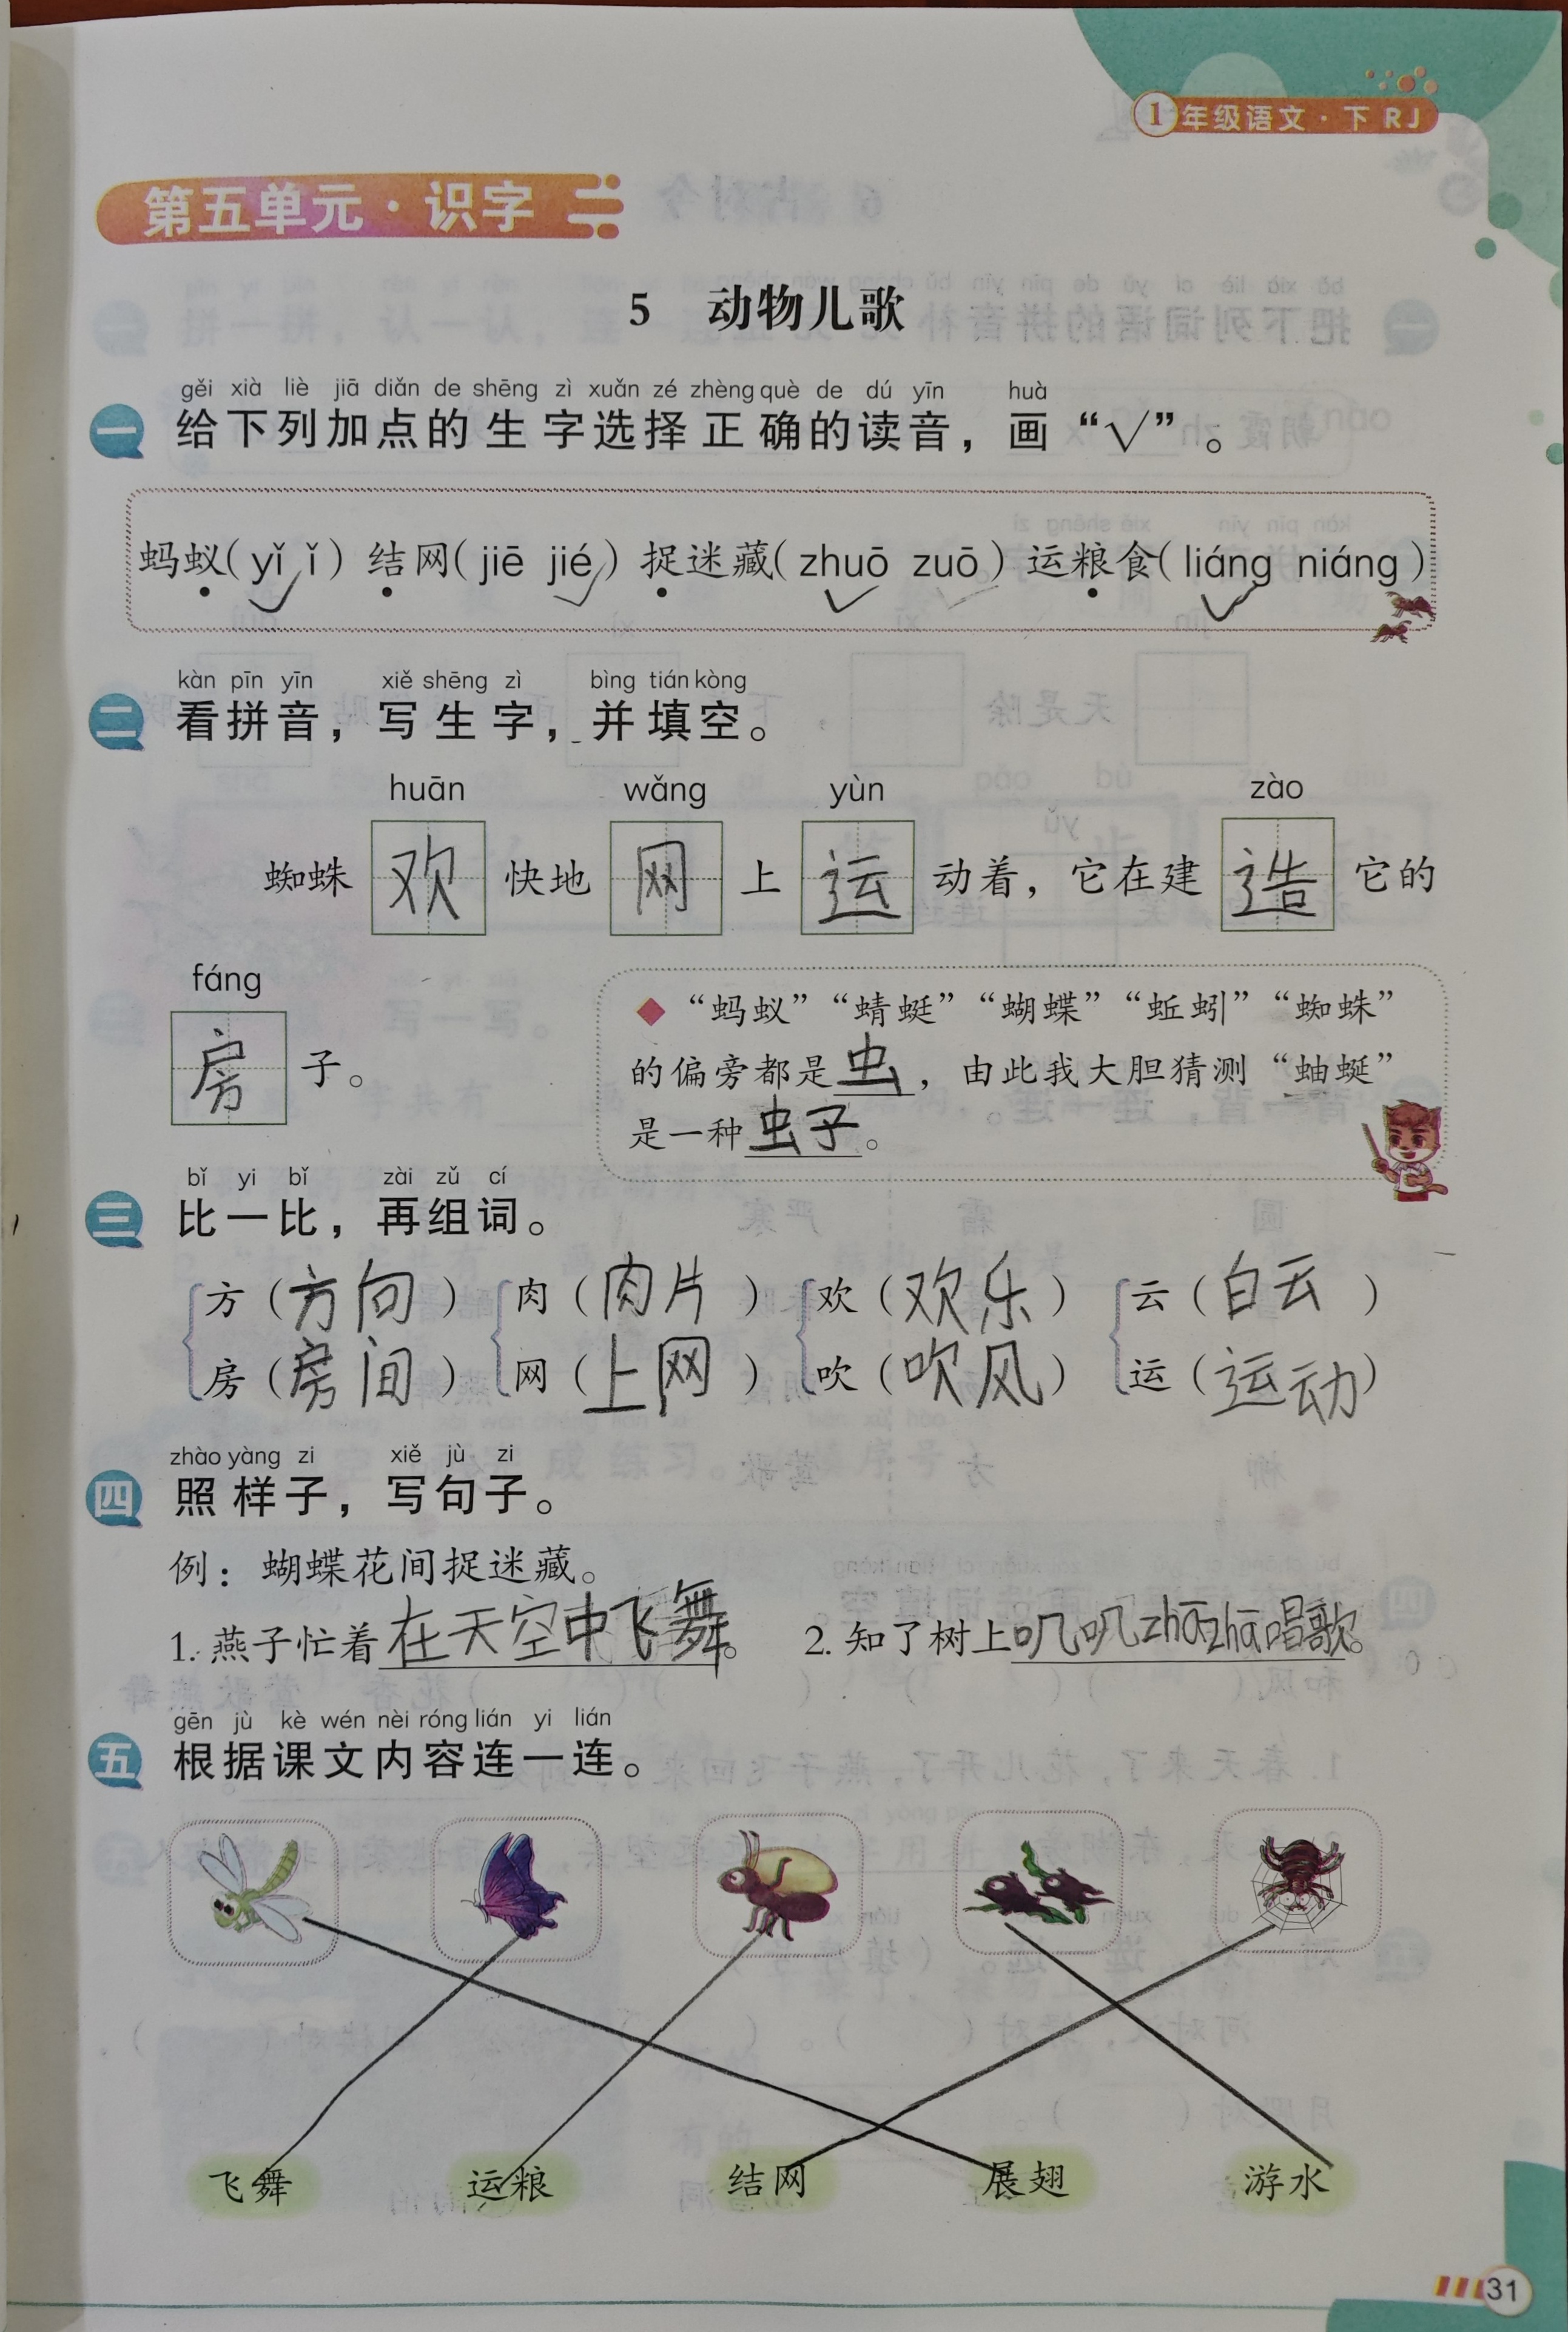 1年级语文·下 RJ
第五单元·识字
5 动物儿歌
gěi xià liè jiā diǎn de shēng zì xuǎn zé zhèng què de dú yīn huà
一 给下列加点的生字选择正确的读音，画“√”。
蚂蚁(yǐ ǐ) 结网(jiē jié) 捉迷藏(zhuō zuō) 运粮食(liáng niáng)
kàn pīn yīn xiě shēng zì bìng tián kòng
二 看拼音，写生字，并填空。
huān wǎng yùn zào
蜘蛛 欢 快地 网 上 运 动着，它在建 造 它的
fáng
房 子。
◆“蚂蚁”“蜻蜓”“蝴蝶”“蚯蚓”“蜘蛛”
的偏旁都是虫，由此我大胆猜测“蚰蜒”
是一种虫子。
bǐ yi bǐ zài zǔ cí
三 比一比，再组词。
方（方向） 肉（肉片） 欢（欢乐） 云（白云）
房（房间） 网（上网） 吹（吹风） 运（运动）
zhào yàng zi xiě jù zi
四 照样子，写句子。
例：蝴蝶花间捉迷藏。
1. 燕子忙着在天空中飞舞。 2. 知了树上叽叽zhāzhā唱歌。
gēn jù kè wén nèi róng lián yi lián
五 根据课文内容连一连。
飞舞 运粮 结网 展翅 游水
31